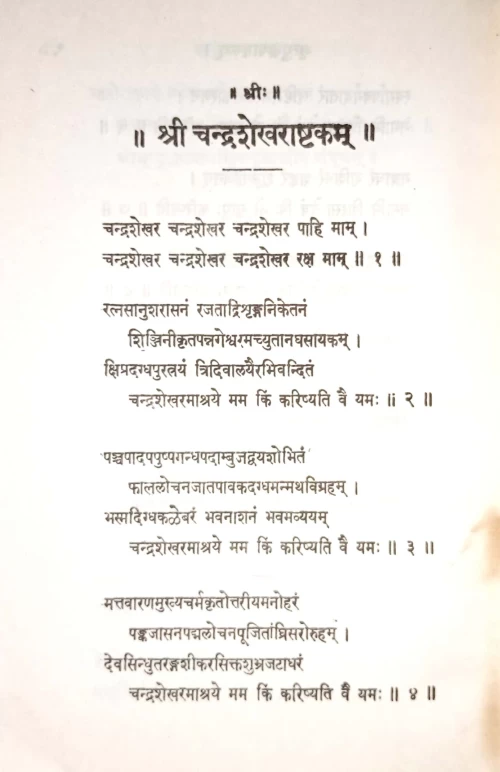 ॥ श्रीः ॥
॥ श्री चन्द्रशेखराष्टकम् ॥
चन्द्रशेखर चन्द्रशेखर चन्द्रशेखर पाहि माम् ।
चन्द्रशेखर चन्द्रशेखर चन्द्रशेखर रक्ष माम् ॥ १ ॥
रत्नसानुशरासनं रजताद्रिशृङ्गनिकेतनं
शिञ्जिनीकृतपन्नगेश्वरमच्युतानघसायकम् ।
क्षिप्रदग्धपुरत्रयं त्रिदिवालयैरभिवन्दितं
चन्द्रशेखरमाश्रये मम किं करिष्यति वै यमः ॥ २ ॥
पञ्चपादपपुष्पगन्धपदाम्बुजद्वयशोभितं
फाललोचनजातपावकदग्धमन्मथविग्रहम् ।
भस्मदिग्धकळेबरं भवनाशनं भवमव्ययम्
चन्द्रशेखरमाश्रये मम किं करिष्यति वै यमः ॥ ३ ॥
मत्तवारणमुख्यचर्मकृतोत्तरीयमनोहरं
पङ्कजासनपद्मलोचनपूजितांघ्रिसरोरुहम् ।
देवसिन्धुतरङ्गशीकरसिक्तशुभ्रजटाधरं
चन्द्रशेखरमाश्रये मम किं करिष्यति वै यमः ॥ ४ ॥